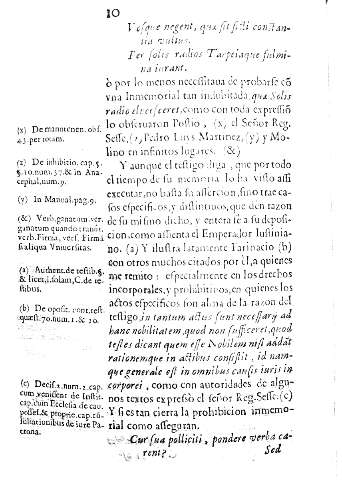 10
Vosque negent, qua sit ficti constan-
tia vultus.
Per solis radios Tarpeiaque fulmi-
na iurant.
ò por lo menos necessitava de probarse cõ
vna Inmemorial tan inhabitada, qua Solis
radio
como con toda expressiõ
lo observaron Postio, (x) el Señor Reg.
Sesse, (z) Pedro Luis Martinez, (y) y Mo-
lino en infinitos lugares. (&)
Y aunque el testigo diga, que por todo
el tiempo de su memoria lo ha visto assi
executar, no basta su assercion, sino trae ca-
sos especificos, y distintivos, que den razon
de su mismo dicho, y entera fe a su deposi-
cion, como assienta el Emperador Iustinia-
no. (a) Y ilustra latamente Farinacio (b)
con otros muchos citados por el, a quienes
me remito: especialmente en los derechos
incorporales, y prohibitivos, en quienes los
actos especificos son alma de la razon del
testigo in tantum actus sunt necessarij ad
hanc nobilitatem, quod non sufficeret, quod
testes dicant quem esse Nobilem nisi addãt
rationem que in actibus consistit, id nam-
que generale est in omnibus causis iuris in
corporei, como con autoridades de algu-
nos textos expressò el señor Reg. Sesse. (c)
Y si es tan cierta la prohibicion inmemo-
rial como asseguran.
Cur sua polliciti, pondere verba ca-
rent?
Sed
(x) De manutenen. obs.
43. per totam.
(z) De inhibitio. cap. 5.
§. 10. num. 57. & in Ana-
cephal. num. 9.
(y) In Manual. pag. 9.
(&) Verb. ganatum ver.
ganatum quando transit.
verb. Firma, vers. Firma
si aliqua Vniversitas.
(a) Authent. de testib. §.
& licet, l. solam, C. de te-
stibus.
(b) De oposit. cont. test.
quæst. 70. num. 1. & 10.
(c) Decis. 2. num. 2. cap.
cum venissent de Instit.
cap. cum Ecclesia de cau.
posses. & propriet. cap. cũ
filiationibus de iure Pa-
trona.